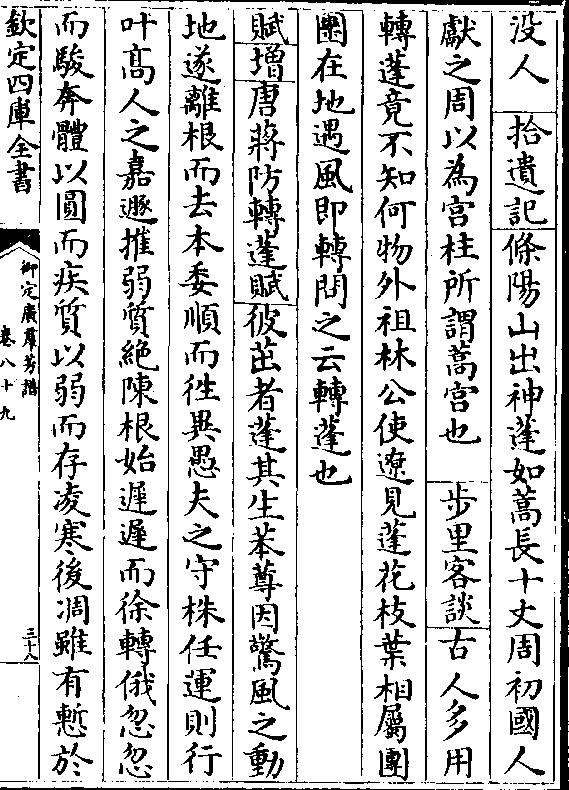 没人 拾遺記 條陽山出神蓬如蒿長十丈周初國人
獻之周以為宫柱所謂蒿宫也 步里客談 古人多用
轉蓬竟不知何物外祖林公使遼見蓬花枝葉相屬團
團在地遇風即轉問之云轉蓬也
賦增唐蔣防轉蓬賦 彼茁者蓬其生苯䔿因驚風之動
地遂離根而去本委順而徃異愚夫之守株任運則行
叶髙人之嘉遯摧弱質絶陳根始遲遲而徐轉俄忽忽
而駿奔體以圓而疾質以弱而存凌寒後凋雖有慙於
欽定四庫全書
御定廣羣芳譜
卷八十九
三十八